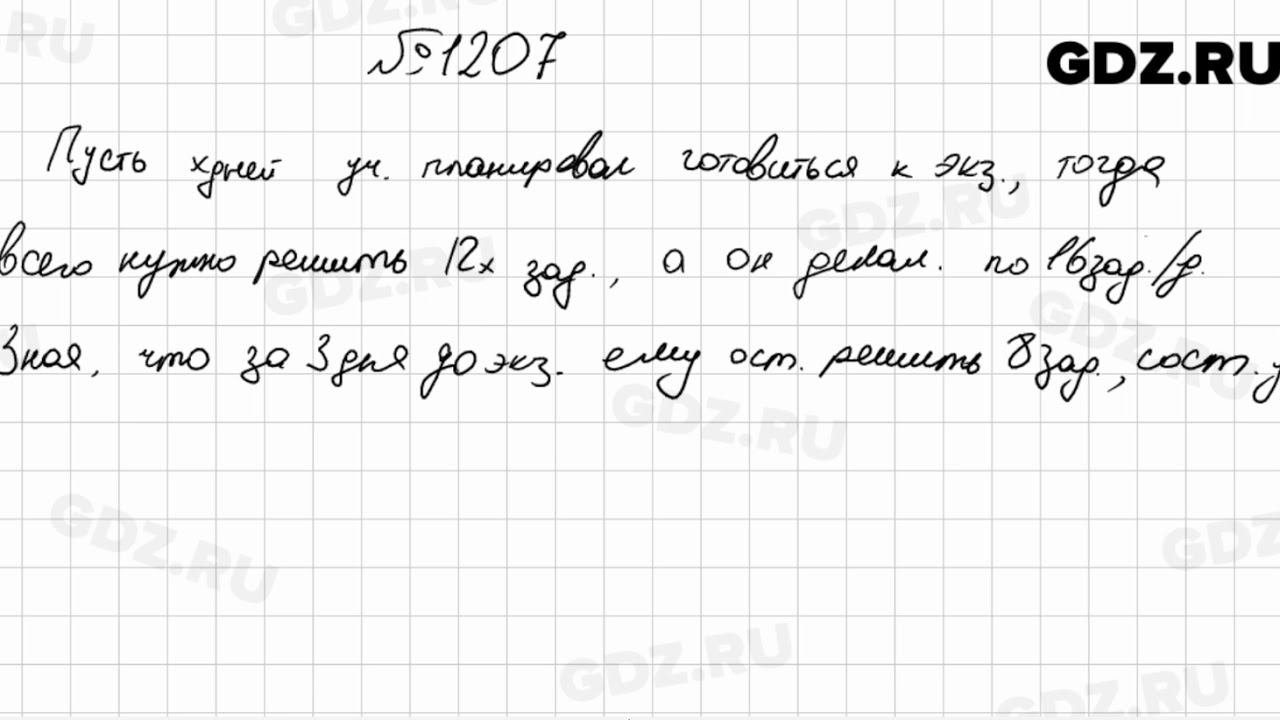 №1207
GDZ.RU
Пусть x дней уч. планировал готовиться к экз., тогда
всего нужно решить 12x зад., а он делал. по 16 зад./д.
Зная, что за 3 дня до экз. ему ост. решить 8 зад., сост. у